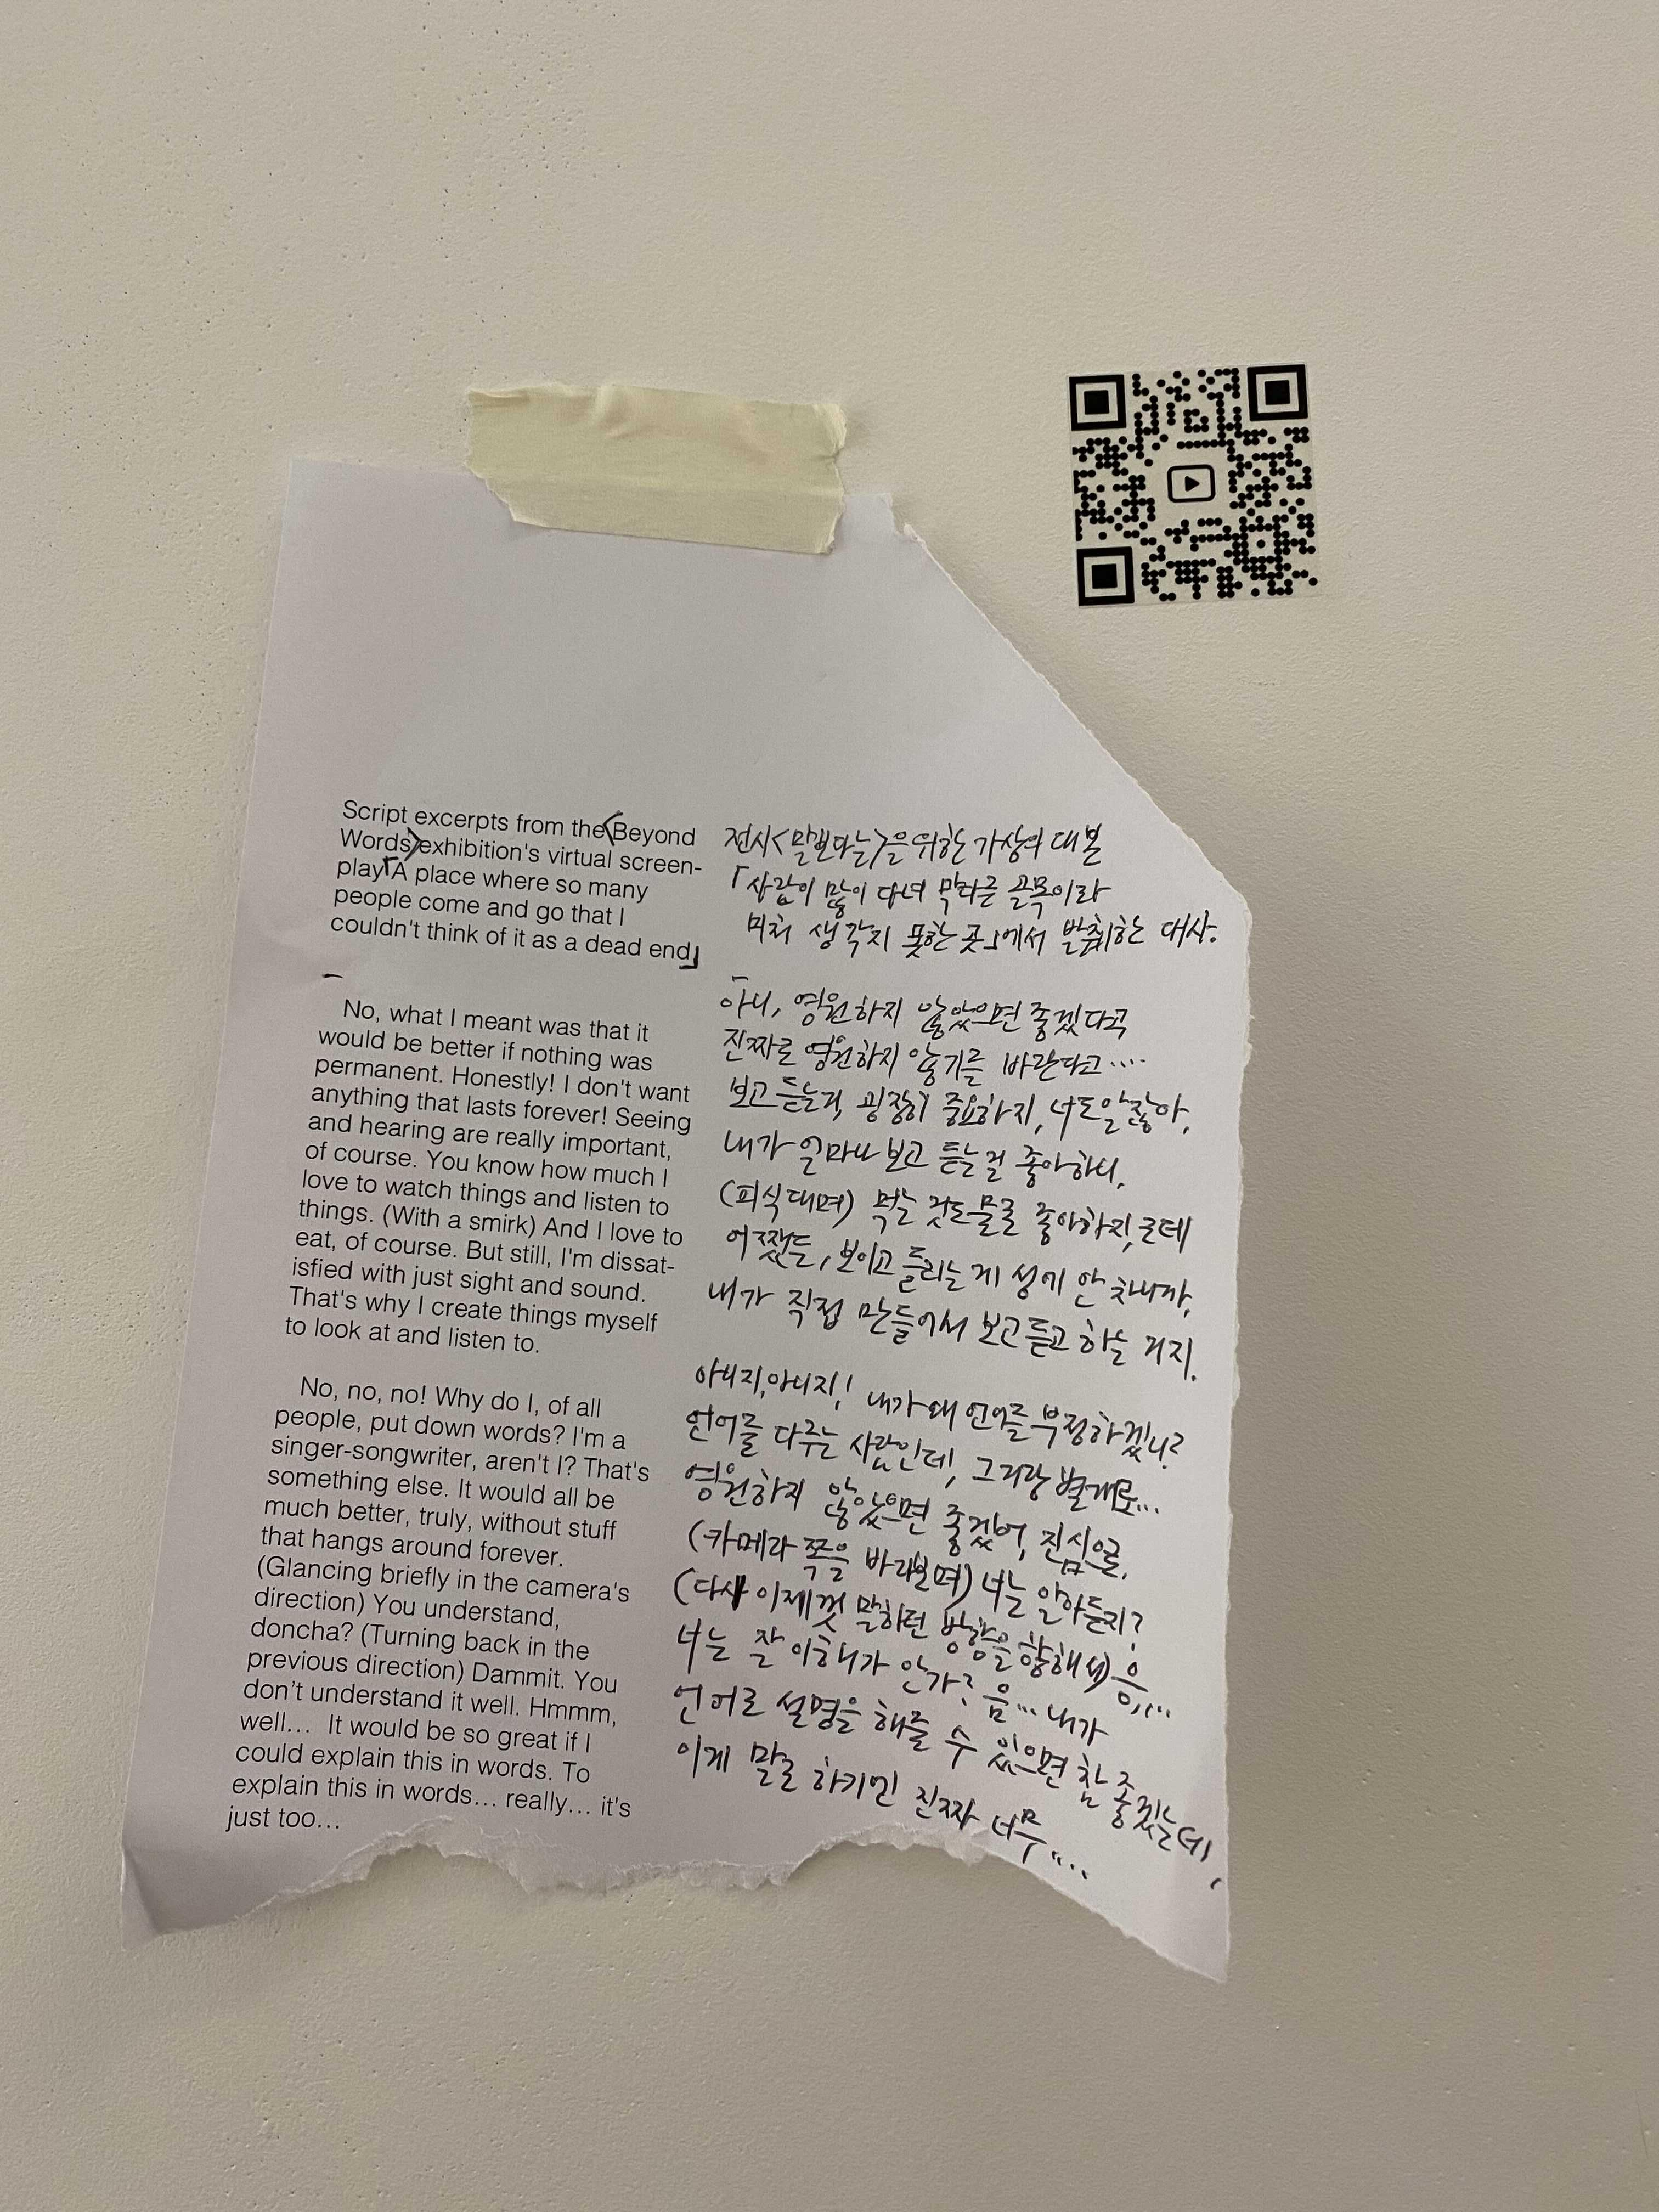 Script excerpts from the<Beyond
Words>exhibition's virtual screen-
play「A place where so many
people come and go that I
couldn't think of it as a dead end」
–
No, what I meant was that it
would be better if nothing was
permanent. Honestly! I don't want
anything that lasts forever! Seeing
and hearing are really important,
of course. You know how much I
love to watch things and listen to
things. (With a smirk) And I love to
eat, of course. But still, I'm dissat-
isfied with just sight and sound.
That's why I create things myself
to look at and listen to.
No, no, no! Why do I, of all
people, put down words? I'm a
singer-songwriter, aren't I? That's
something else. It would all be
much better, truly, without stuff
that hangs around forever.
(Glancing briefly in the camera's
direction) You understand,
doncha? (Turning back in the
previous direction) Dammit. You
don't understand it well. Hmmm,
well... It would be so great if I
could explain this in words. To
explain this in words... really... it's
just too...
전시<말보다는>을 위한 가상의 대본
「사람이 많이 다녀 막다른 골목이라
미처 생각지 못한 곳」에서 발췌한 대사.
–
아니, 영원하지 않았으면 좋겠다고
진짜로 영원하지 않기를 바란다고....
보고 듣는거, 굉장히 중요하지, 너도 알잖아,
내가 얼마나 보고 듣는 걸 좋아하니,
(피식대며) 먹는 것도 물론 좋아하지, 근데
어쨌든, 보이고 들리는 게 성에 안 차니까,
내가 직접 만들어서 보고 듣고 하는 거지.
아니지, 아니지! 내가 왜 언어를 부정하겠니?
언어를 다루는 사람인데, 그거랑 별개로...
영원하지 않았으면 좋겠어, 진심으로.
(카메라 쪽을 바라보며) 너는 알아듣지?
(다시 이제껏 말하던 방향을 향해서) 응,...
너는 잘 이해가 안가? 음... 내가
언어로 설명을 해줄 수 있으면 참 좋겠는데,
이게 말로 하기엔 진짜 너무....